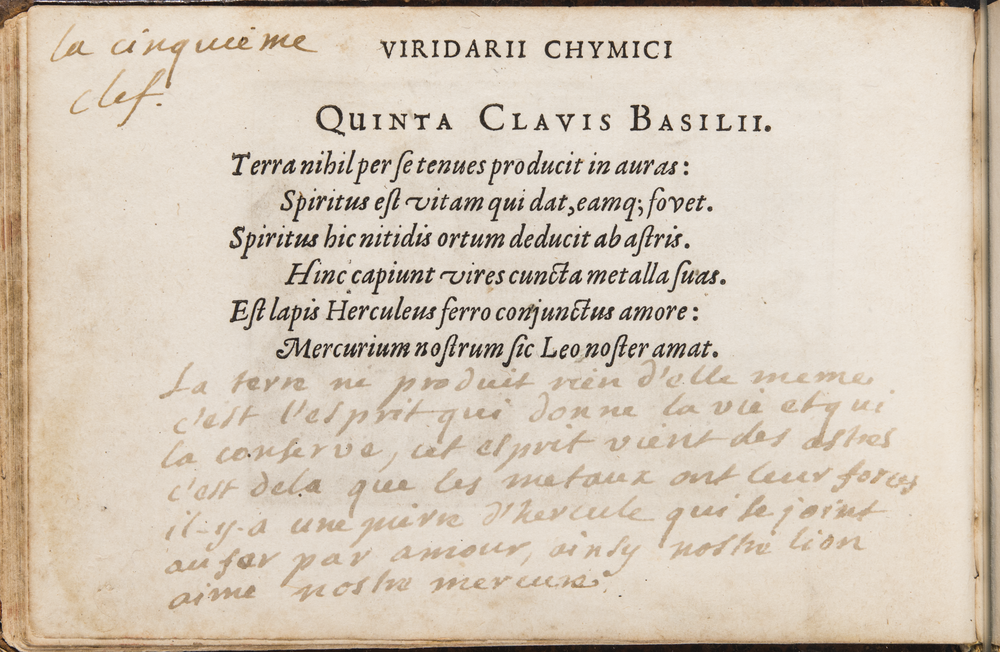 la cinquieme
clef.
VIRIDARII CHYMICI
QUINTA CLAVIS BASILII.
Terra nihil per se tenues producit in auras:
Spiritus est vitam qui dat, eamq; fovet.
Spiritus hic nitidis ortum deducit ab astris.
Hinc capiunt vires cuncta metalla suas.
Est lapis Herculeus ferro conjunctus amore:
Mercurium nostrum sic Leo noster amat.
La terre ne produit rien d'elle meme
c'est l'esprit qui donne la vie et qui
la conserve, cet esprit vient des astres
c'est dela que les metaux ont leur forces
il-y-a une pierre d'hercule qui se joint
au fer par amour, ainsy nostre lion
aime nostre mercure.